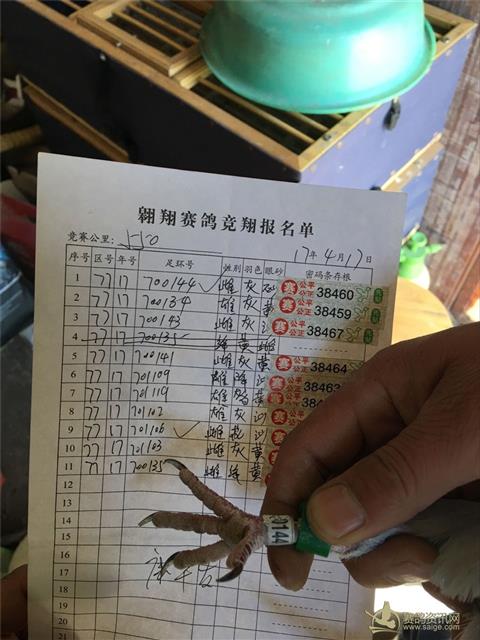 翱翔赛鸽竞翔报名单
竞赛公里: 550 17年4月17日
序号 区号 年号 足环号 性别 羽色 眼砂 密码条存根
1 77 17 700144 ✓ 雌 灰 砂 赛 公平 公正 38460
2 77 17 700134 雄 灰 黄 赛 公平 公正 38459
3 77 17 700143 雌 灰 沙 赛 公平 公正 38467
4 77 17 700135 黄
5 77 17 700141 雌 灰 黄 赛 公平 公正 38464
6 77 17 701109 雄 沙 赛 公平 公正 3846
7 77 17 701119 雄 黄 赛 公平 公正
8 77 17 701102 雄 灰 沙 赛 公平
9 77 17 701106 ✓ 雌 沙 赛
10 77 17 701103 雌 灰 黄
11 77 17 700135 雌 绛 黄
12
13
14
15
16
17
18
19
20
21
0144
赛鸽资讯网
www.saige.com